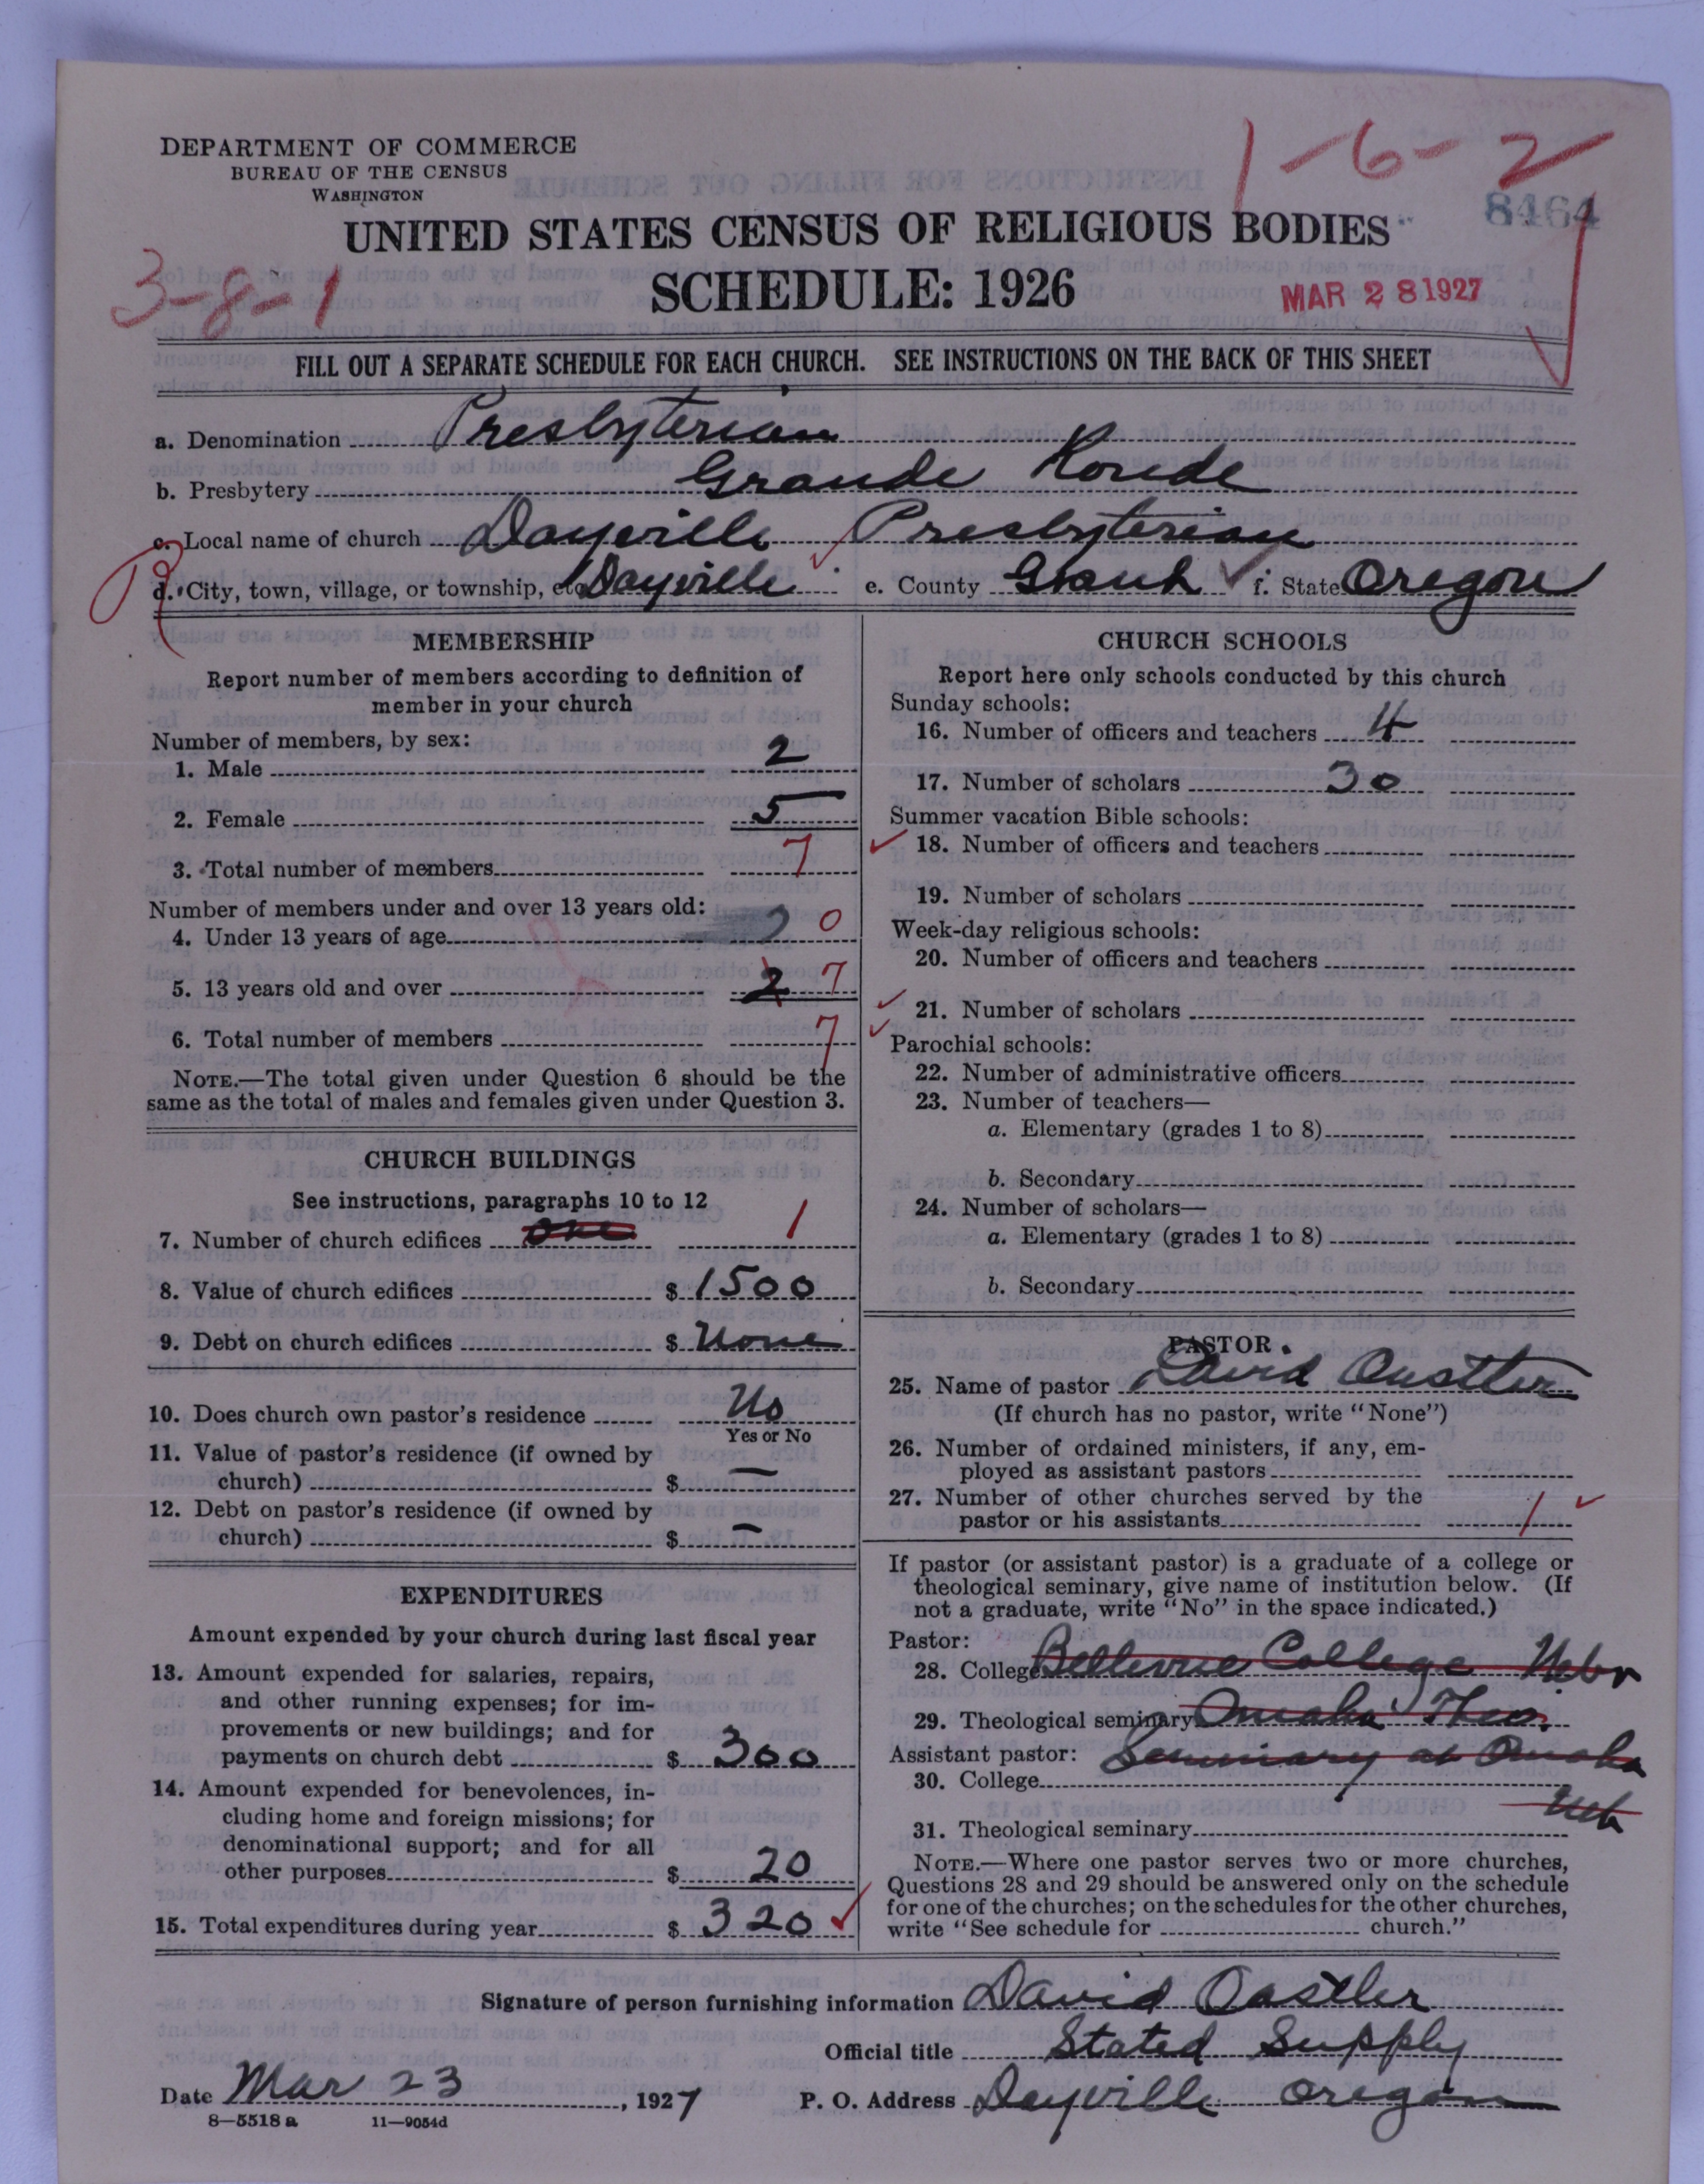 DEPARTMENT OF COMMERCE
BUREAU OF THE CENSUS
WASHINGTON
1-6-2
8464
UNITED STATES CENSUS OF RELIGIOUS BODIES
3-8-1
SCHEDULE: 1926
MAR 28 1927
FILL OUT A SEPARATE SCHEDULE FOR EACH CHURCH. SEE INSTRUCTIONS ON THE BACK OF THIS SHEET
a. Denomination Presbyterian
b. Presbytery Grande Ronde
c. Local name of church Dayville Presbyterian
d. City, town, village, or township, etc. Dayville e. County Grant f. State Oregon
MEMBERSHIP
Report number of members according to definition of
member in your church
Number of members, by sex:
1. Male 2
2. Female 5
3. Total number of members 7
Number of members under and over 13 years old:
4. Under 13 years of age 0
5. 13 years old and over 2 7
6. Total number of members 7
NOTE.—The total given under Question 6 should be the
same as the total of males and females given under Question 3.
CHURCH BUILDINGS
See instructions, paragraphs 10 to 12
7. Number of church edifices one 1
8. Value of church edifices $ 1500
9. Debt on church edifices $ None
10. Does church own pastor's residence No
Yes or No
11. Value of pastor's residence (if owned by
church) $ —
12. Debt on pastor's residence (if owned by
church) $ —
EXPENDITURES
Amount expended by your church during last fiscal year
13. Amount expended for salaries, repairs,
and other running expenses; for im-
provements or new buildings; and for
payments on church debt $ 300
14. Amount expended for benevolences, in-
cluding home and foreign missions; for
denominational support; and for all
other purposes $ 20
15. Total expenditures during year $ 320
CHURCH SCHOOLS
Report here only schools conducted by this church
Sunday schools:
16. Number of officers and teachers 4
17. Number of scholars 30
Summer vacation Bible schools:
18. Number of officers and teachers
19. Number of scholars
Week-day religious schools:
20. Number of officers and teachers
21. Number of scholars
Parochial schools:
22. Number of administrative officers
23. Number of teachers—
a. Elementary (grades 1 to 8)
b. Secondary
24. Number of scholars—
a. Elementary (grades 1 to 8)
b. Secondary
PASTOR
25. Name of pastor David Oastler
(If church has no pastor, write "None")
26. Number of ordained ministers, if any, em-
ployed as assistant pastors
27. Number of other churches served by the
pastor or his assistants 1
If pastor (or assistant pastor) is a graduate of a college or
theological seminary, give name of institution below. (If
not a graduate, write "No" in the space indicated.)
Pastor:
28. College Bellevue College Nebr
29. Theological seminary Omaha Theo.
Assistant pastor: Seminary at Omaha
30. College
Neb
31. Theological seminary
NOTE.—Where one pastor serves two or more churches,
Questions 28 and 29 should be answered only on the schedule
for one of the churches; on the schedules for the other churches,
write "See schedule for church."
Signature of person furnishing information David Oastler
Official title Stated Supply
Date Mar 23, 1927 P. O. Address Dayville Oregon
8—5518 a 11—9054d